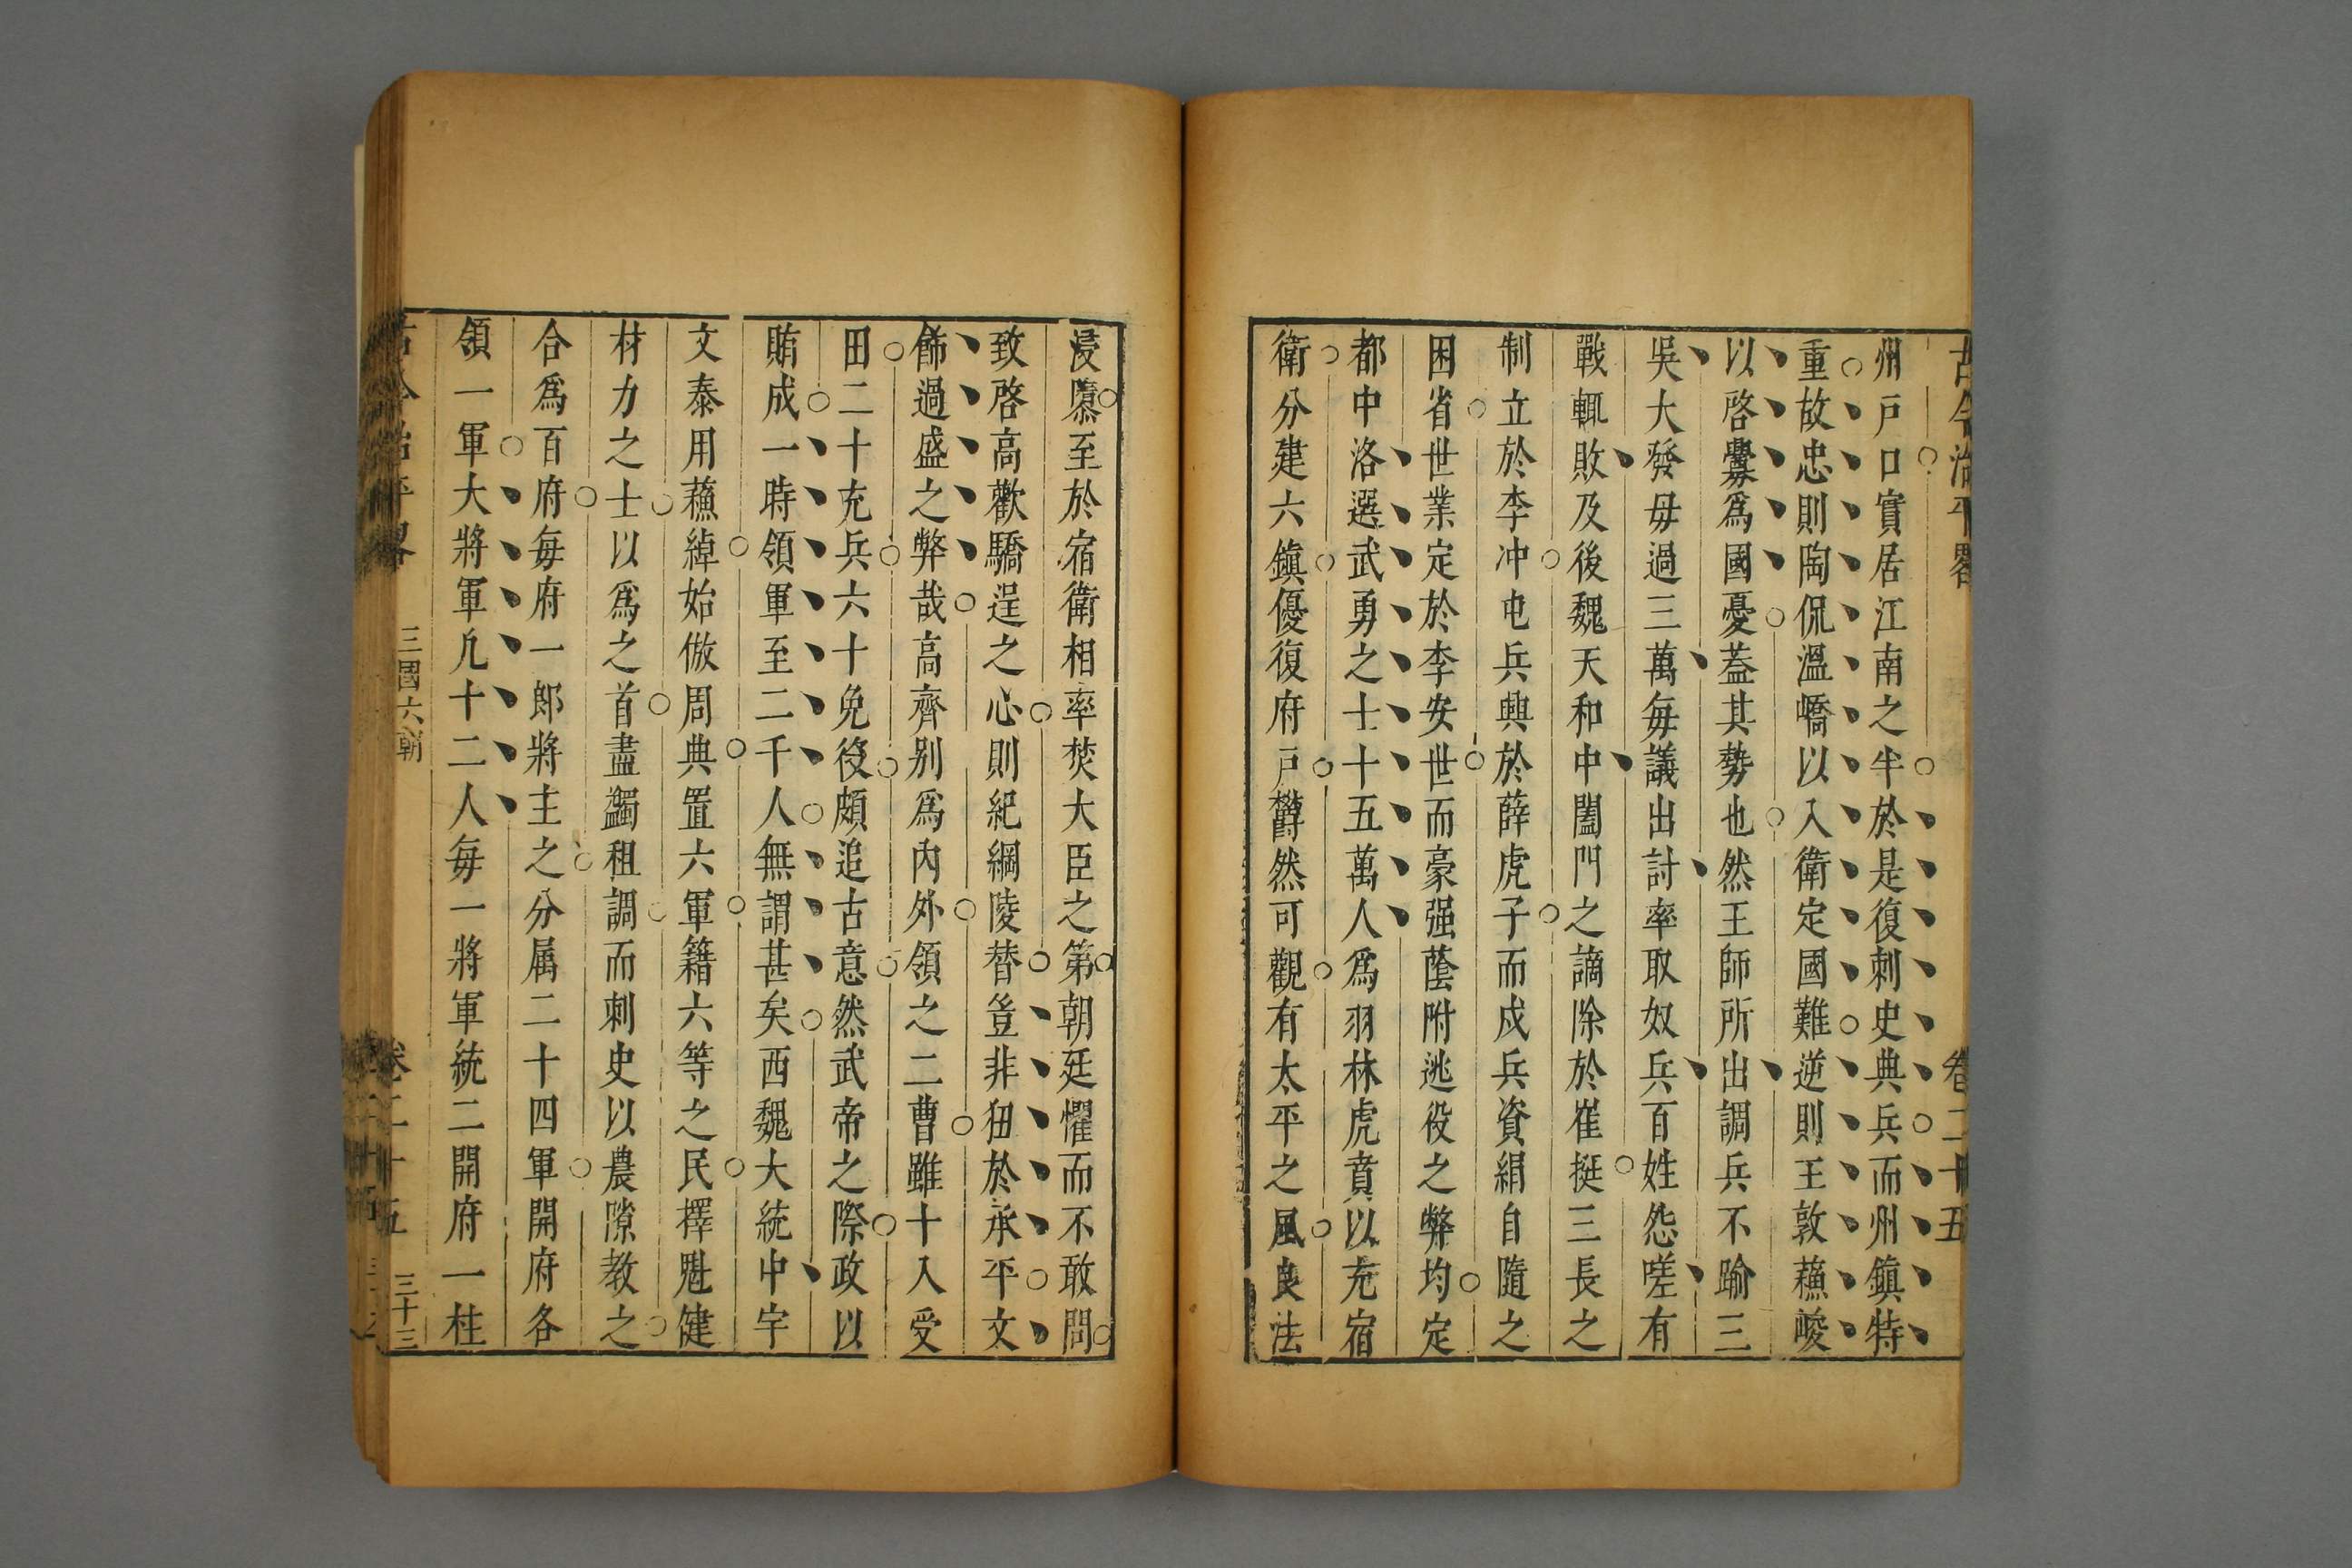 古今治平畧 卷二十五
州戸口實居江南之半於是復刺史典兵而州鎮特
重故忠則陶侃溫嶠以入衛定國難逆則王敦蘓峻
以啓釁爲國憂葢其勢也然王師所出調兵不踰三
吳大發毋過三萬每議出討率取奴兵百姓怨嗟有
戰輒敗及後魏天和中闔門之謫除於崔挺三長之
制立於李冲屯兵興於薛虎子而戍兵資絹自隨之
困省世業定於李安世而豪强蔭附逃役之弊均定
都中洛選武勇之士十五萬人爲羽林虎賁以充宿
衛分建六鎮優復府戸欝然可觀有太平之風良法
浸隳至於宿衛相率焚大臣之第朝廷懼而不敢問
致啓高歡驕逞之心則紀綱陵替豈非狃於承平文
飾過盛之弊哉高齊别爲內外領之二曹雖十入受
田二十充兵六十免役頗追古意然武帝之際政以
賄成一時領軍至二千人無謂甚矣西魏大統中宇
文泰用蘓綽始倣周典置六軍籍六等之民擇魁健
材力之士以爲之首盡蠲租調而刺史以農隙教之
合爲百府每府一郎將主之分属二十四軍開府各
領一軍大將軍凢十二人每一將軍統二開府一柱
古今治平畧 三國六朝 卷二十五 三十三